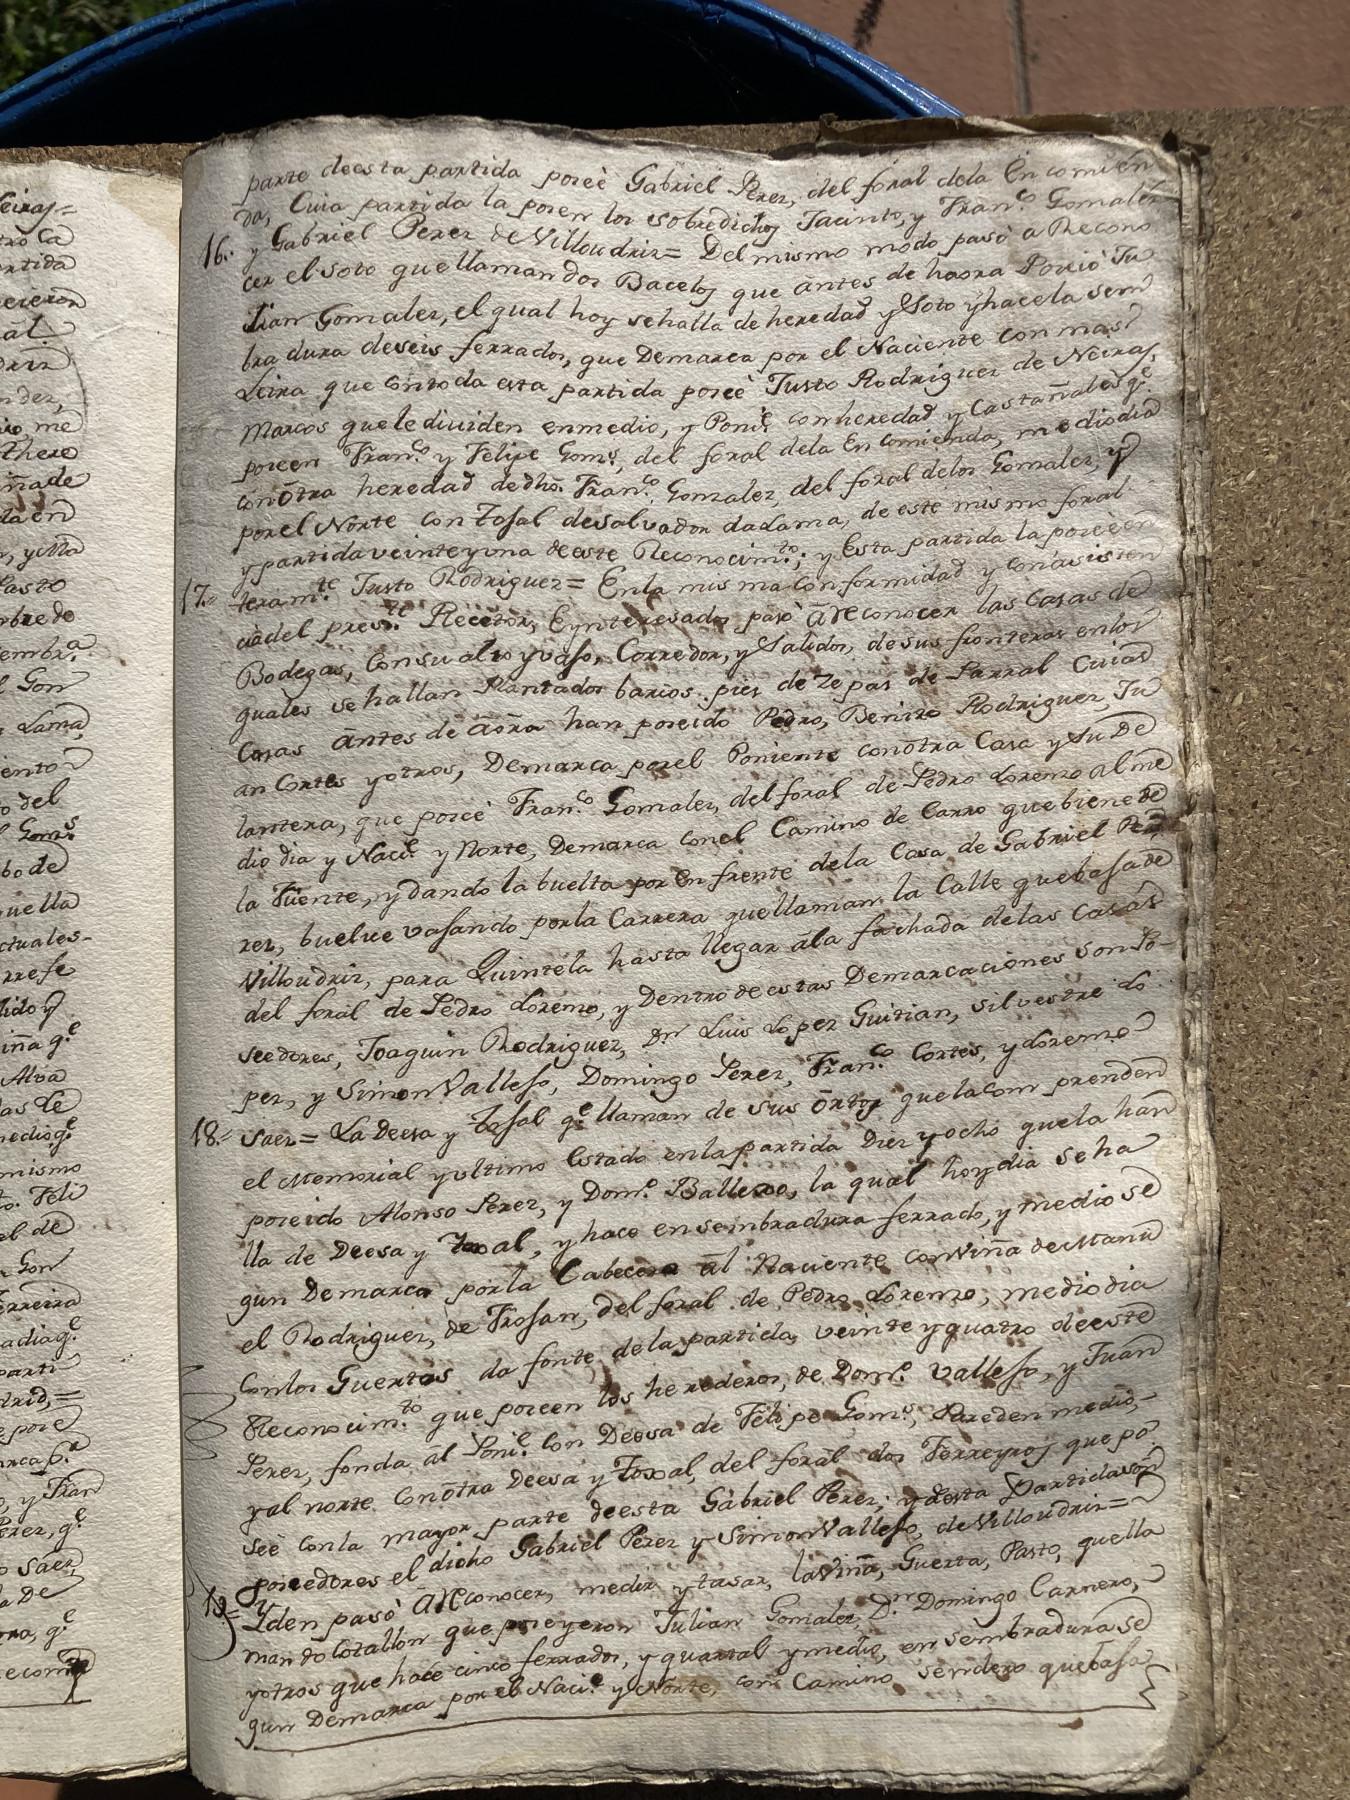 parte deesta partida poseè Gabriel Perez, del foral dela Encomien
da, Cuia partida la poseen los sobredichos Jacinto, y Fran.co Gomalez
y Gabriel Perez de Villoudriz=
16.. Del mismo modo pasò a Recono
cer el soto quellaman dos Bacelos que antes de haora Poseiò Ju
lian Gomalez, el qual hoy sehalla de heredad y Soto y hace la sem
bradura deseis ferrados, que Demarca por el Naciente con mas
Leira que contoda esta partida poseè Justo Rodriguez de Neiras,
Marcos que le dividen enmedio, y Poni.e con heredad y Castañales q.e
poseen Fran.co y Felipe Gom.s, del foral dela Encomienda, mediodia
conòtra heredad de dho. Fran.co Gomalez, del foral delos Gomalez, y
por el Norte con tosal desalvador dadama, de este mismo foral
y partida veinteyuna deeste Reconocim.to; y Esta partida la poseè en
teram.te Justo Rodriguez=
17.= Enla misma conformidad y conasisten
cia del pres.te Recetor, E ynteresados pasò àReconocer las Casas de
Bodegas, consu alto y vaso, Corredor, y Salidos, desus fronteras enlos
quales se hallan Plantados barios pies de zepas de Parral Cuias
Casas antes de àora han poseido Pedro, Benito Rodriguez, Ju
an Cortes yotros, Demarca porel Poniente conòtra Casa y Su De
lantera, que poseè Fran.co Gomalez, del foral de Pedro Lorenzo al me
dio dia y Naci.e y Norte, Demarca conel Camino de Carro quebiene de
la Fuente, y dando la buelta por en frente dela Casa de Gabriel Pe
rez, buelve vasando porla Carrera quellaman la Calle quebasa de
Villoudriz, para Quintela hasta llegar àla fachada delas Casas
del foral de Pedro Lorenzo, y Dentro de estas Demarcaciones son Po-
seedores, Joaquin Rodriguez, D.n Luis Lopez Guitian, Silvestre Lo
pez, y Simon Vallejo, Domingo Perez, Fran.co Cortes, y Lorenzo
Saez=
18.= La Deesa y tosal q.e llaman de sus òrtos quelacom prenden
el Memorial y ultimo Estado enlapartida Diez y ocho quela han
poseido Alonso Perez, y Dom.o Ballexo, la qual hoydia se ha
lla de Deesa y toxal, y hace ensembradura ferrado, y medio se
gun Demarca porla Cabecera àl Naciente conViña de Manu
el Rodriguez, de Frojan, del foral de Pedro Lorenzo, mediodia
conlos Guertos da fonte, dela partida veinte y quatro deeste
Reconocim.to que poseen los herederos, de Dom.o Vallejo, y Juan
Perez, fonda àl Poni.e con Deesa de Felipe Gom.s, Pareden medio,
yal norte conòtra Deesa y Toxal, del foral dos Ferreyros que po
seè conla mayor parte deesta Gabriel Perez; y desta Partidason
poseedores el dicho Gabriel Perez y Simon Vallejo, de Villoudriz=
19= Yden pasò àReconocer, medir ytasar, laviña, Guerta, Pasto, quella
man do Cotallon que poseyeron Julian Gomalez, D.n Domingo Carnero,
yotros que hace cinco ferrados, y quartal y medio, en sembradura se
gun Demarca por el Naci.e y Norte, con Camino sendero quebasa